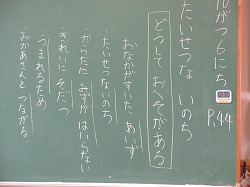 がつ6にち
P.44
たいせつな いのち
どうして おへそがある
おなかがすいた あいず
・たいせつないのち
からだに みずがはいらない
きれいに そだつ
・うまれるため
おかあさんと つながる